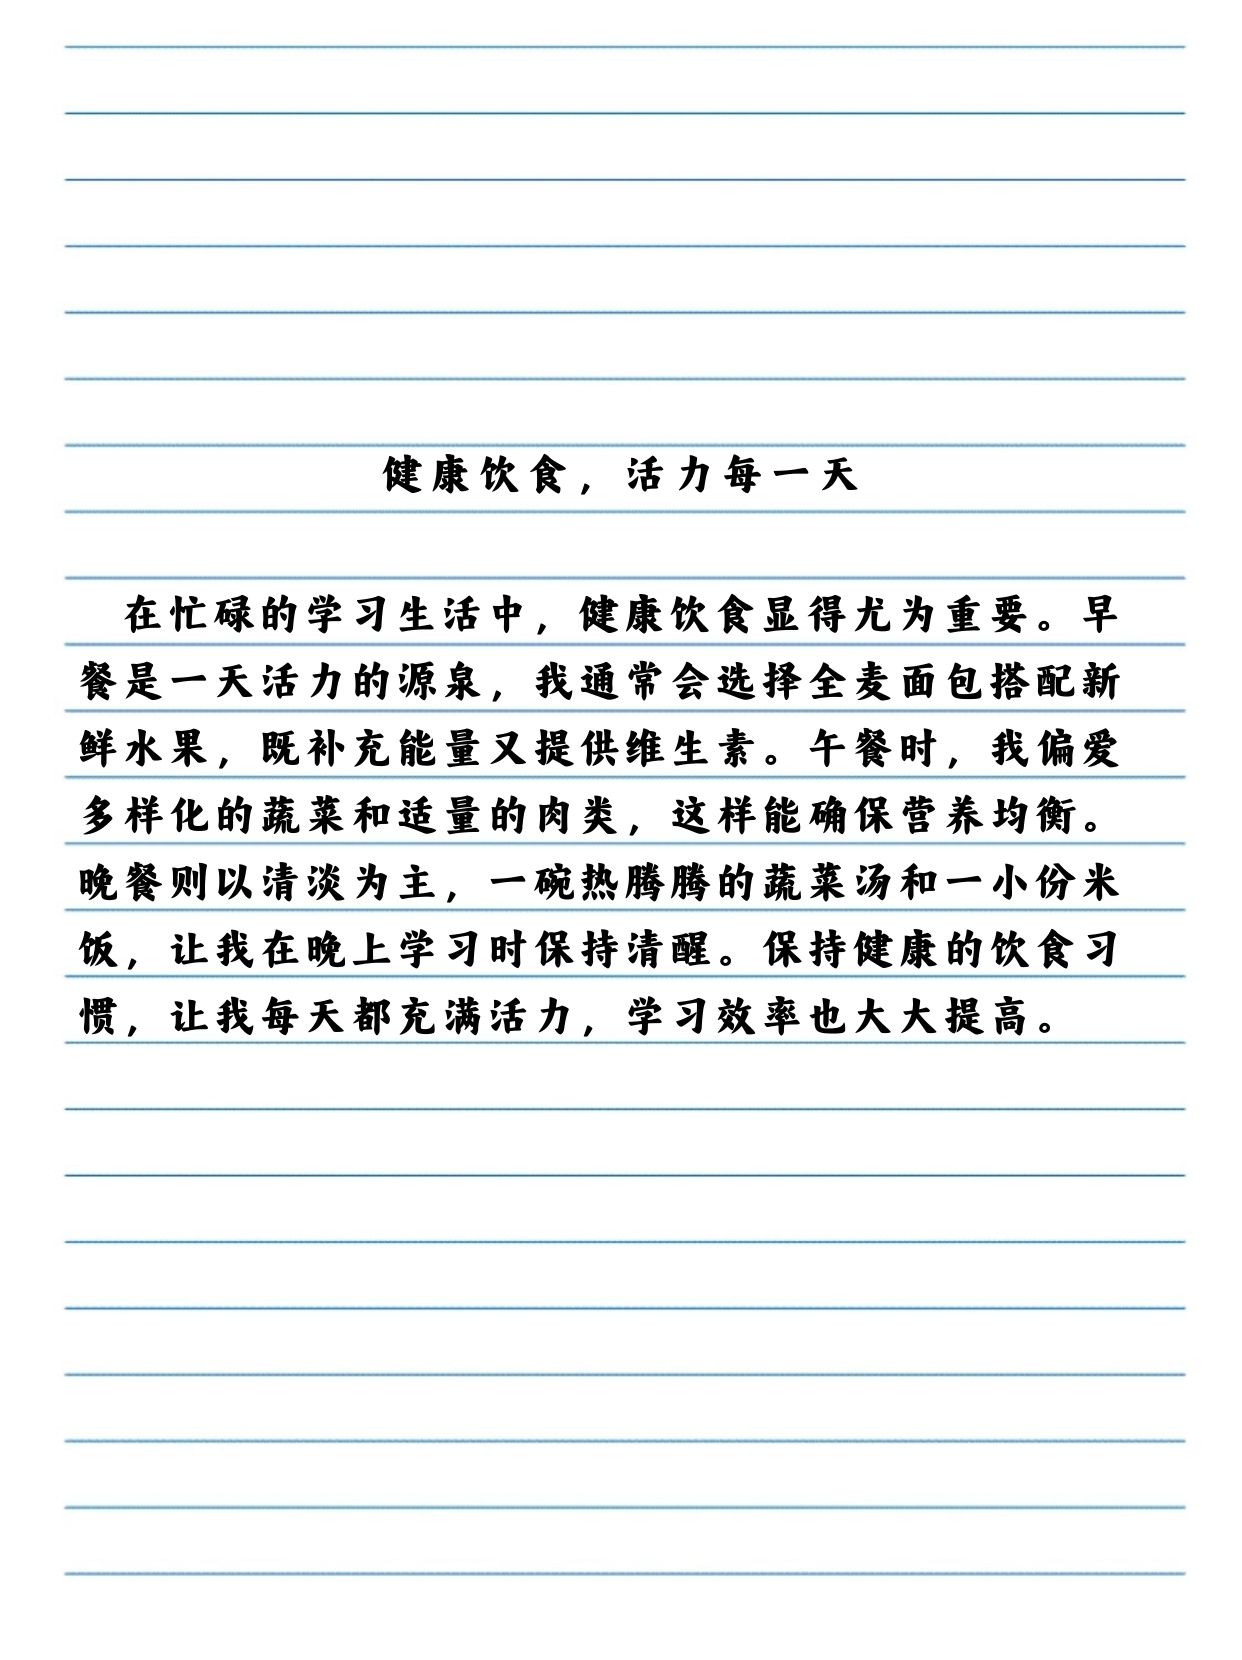 健康饮食，活力每一天
在忙碌的学习生活中，健康饮食显得尤为重要。早
餐是一天活力的源泉，我通常会选择全麦面包搭配新
鲜水果，既补充能量又提供维生素。午餐时，我偏爱
多样化的蔬菜和适量的肉类，这样能确保营养均衡。
晚餐则以清淡为主，一碗热腾腾的蔬菜汤和一小份米
饭，让我在晚上学习时保持清醒。保持健康的饮食习
惯，让我每天都充满活力，学习效率也大大提高。